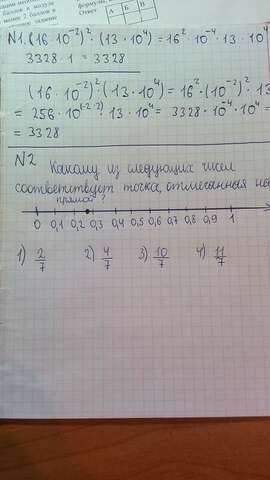 баллов и модуле
менее 2 баллов в
формулы,
Ответ
А Б В
N1. (16 · 10⁻²)² · (13 · 10⁴) = 16² · 10⁻⁴ · 13 · 10⁴
3328 · 1 = 3328
(16 · 10⁻²)² (13 · 10⁴) = 16² · (10⁻²)² · 13
= 256 · 10⁽⁻²·²⁾ · 13 · 10⁴ = 3328 · 10⁻⁴ · 10⁴ =
= 3328
N2 Какому из следующих чисел
соответствует точка, отмеченная на
прямой?
0 0,1 0,2 0,3 0,4 0,5 0,6 0,7 0,8 0,9 1
1) 2/7 2) 4/7 3) 10/7 4) 11/7